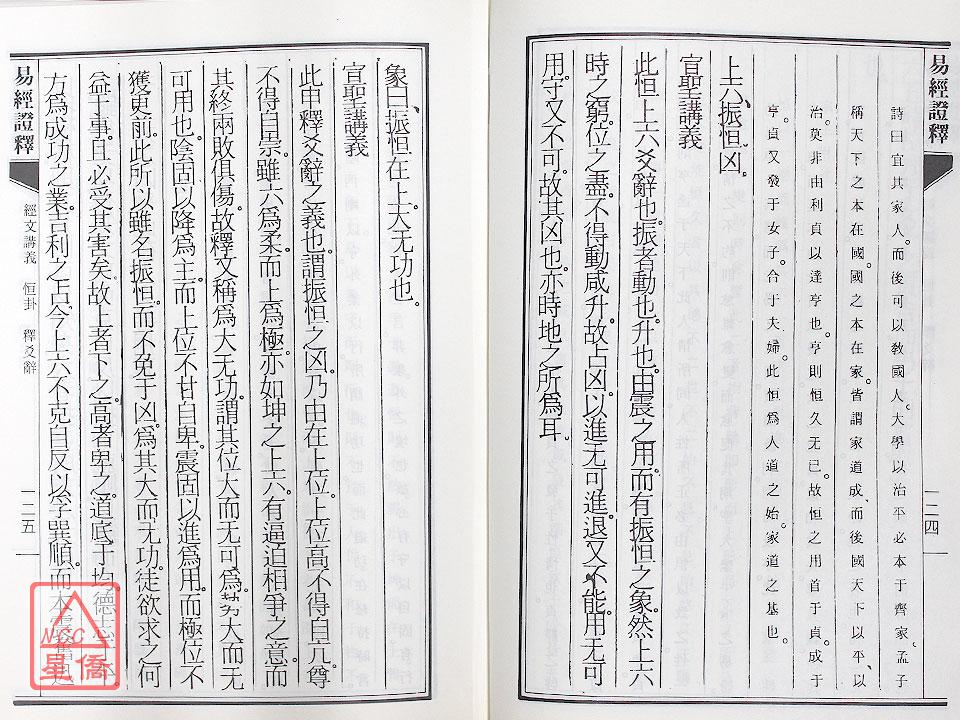 易經證釋
詩曰宜其家人。而後可以教國人。大學以治平必本于齊家。孟子
稱天下之本在國。國之本在家。皆謂家道成、而後國天下以平、以
治。莫非由利貞以達亨也。亨則恒久无已。故恒之用首于貞。成于
亨貞又發于女子。合于夫婦。此恒爲人道之始。家道之基也。
上六、振恒凶。
宣聖講義
此恒上六爻辭也。振者動也。升也。由震之用。而有振恒之象。然上六
時之窮。位之盡。不得動咸升。故占凶。以進无可進。退又不能。用无可
用。守又不可。故其凶也。亦時地之所爲耳。
一二四
象曰、振恒在上。大无功也。
宣聖講義
此申釋爻辭之義也。謂振恒之凶。乃由在上位。上位高不得自亢。尊
不得自崇。雖六爲柔。而上爲極。亦如坤之上六。有逼迫相爭之意。而
其終兩敗俱傷。故釋文稱爲大无功。謂其位大而无可爲。勢大而无
可用也。陰固以降爲主。而上位不甘自卑。震固以進爲用。而極位不
獲更前。此所以雖名振恒。而不免于凶。爲其大而无功。徒欲求之何
益于事。且必受其害矣。故上者下之。高者卑之。道底于均。德志
方爲成功之業。吉利之占。今上六不克自反以孚巽順。而本震奮迅
易經證釋
經文講義 恒卦 釋爻辭
一二五
NCC
星僑